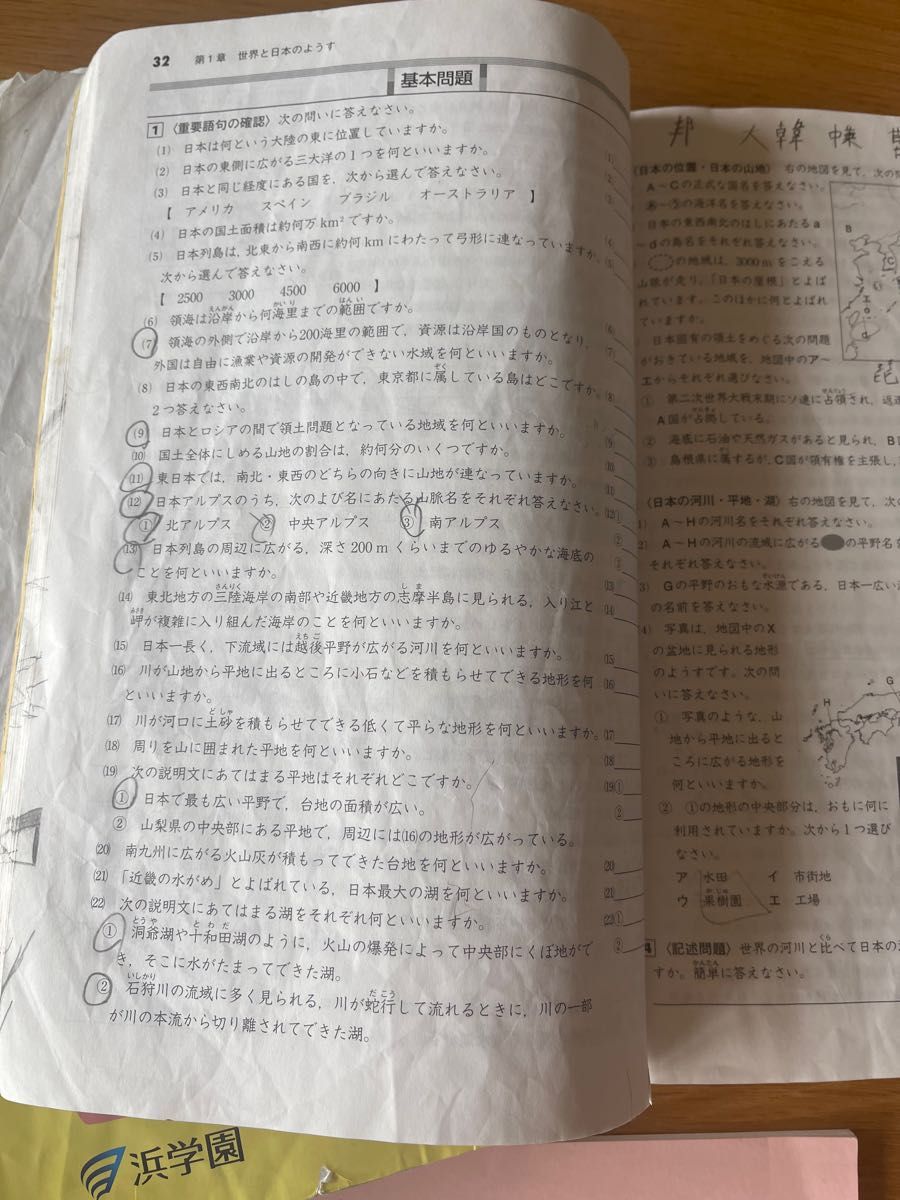 32 第1章 世界と日本のようす
基本問題
1 〈重要語句の確認〉次の問いに答えなさい。
(1) 日本は何という大陸の東に位置していますか。
(2) 日本の東側に広がる三大洋の1つを何といいますか。
(3) 日本と同じ経度にある国を、次から選んで答えなさい。
【 アメリカ スペイン ブラジル オーストラリア 】
(4) 日本の国土面積は約何万km²ですか。
(5) 日本列島は、北東から南西に約何kmにわたって弓形に連なっていますか。
次から選んで答えなさい。
【 2500 3000 4500 6000 】
(6) 領海は沿岸から何海里までの範囲ですか。
(7) 領海の外側で沿岸から200海里の範囲で、資源は沿岸国のものとなり、
外国は自由に漁業や資源の開発ができない水域を何といいますか。
(8) 日本の東西南北のはしの島の中で、東京都に属している島はどこですか。
2つ答えなさい。
(9) 日本とロシアの間で領土問題となっている地域を何といいますか。
(10) 国土全体にしめる山地の割合は、約何分のいくつですか。
(11) 東日本では、南北・東西のどちらの向きに山地が連なっていますか。
(12) 日本アルプスのうち、次のよび名にあたる山脈名をそれぞれ答えなさい。
① 北アルプス ② 中央アルプス ③ 南アルプス
(13) 日本列島の周辺に広がる、深さ200mくらいまでのゆるやかな海底の
ことを何といいますか。
(14) 東北地方の三陸海岸の南部や近畿地方の志摩半島に見られる、入り江と
岬が複雑に入り組んだ海岸のことを何といいますか。
(15) 日本一長く、下流域には越後平野が広がる河川を何といいますか。
(16) 川が山地から平地に出るところに小石などを積もらせてできる地形を何
といいますか。
(17) 川が河口に土砂を積もらせてできる低くて平らな地形を何といいますか。
(18) 周りを山に囲まれた平地を何といいますか。
(19) 次の説明文にあてはまる平地はそれぞれどこですか。
① 日本で最も広い平野で、台地の面積が広い。
② 山梨県の中央部にある平地で、周辺には(16)の地形が広がっている。
(20) 南九州に広がる火山灰が積もってできた台地を何といいますか。
(21) 「近畿の水がめ」とよばれている、日本最大の湖を何といいますか。
(22) 次の説明文にあてはまる湖をそれぞれ何といいますか。
① 洞爺湖や十和田湖のように、火山の爆発によって中央部にくぼ地がで
き、そこに水がたまってできた湖。
② 石狩川の流域に多く見られる、川が蛇行して流れるときに、川の一部
が川の本流から切り離されてできた湖。
浜学園
邦 韓
〈日本の位置・日本の山地〉 右の地図を見て、次の
A～Cの正式な国名を答えなさい。
の海洋名を答えなさい。
日本の東西南北のはしにあたるa
～dの島名をそれぞれ答えなさい。
の地域は、3000mをこえる
山脈が走り、「日本の屋根」とよば
れています。このほかに何とよばれ
ていますか。
日本固有の領土をめぐる次の問題
がおきている地域を、地図中のア～
エからそれぞれ選びなさい。
① 第二次世界大戦末期にソ連に占領され、返還
A国が占拠している。
② 海底に石油や天然ガスがあると見られ、B
③ 島根県に属するが、C国が領有権を主張し、
〈日本の河川・平地・湖〉 右の地図を見て、次の
1) A～Hの河川名をそれぞれ答えなさい。
2) A～Hの河川の流域に広がる の平野名を
それぞれ答えなさい。
3) Gの平野のおもな水源である、日本一広い
の名前を答えなさい。
4) 写真は、地図中のX
の盆地に見られる地形
のようすです。次の問
いに答えなさい。
① 写真のような、山
地から平地に出ると
ころに広がる地形を
何といいますか。
② ①の地形の中央部分は、おもに何に
利用されていますか。次から1つ選び
なさい。
ア 水田 イ 市街地
ウ 果樹園 エ 工場
4 〈記述問題〉 世界の河川と比べて日本の
すか。簡単に答えなさい。